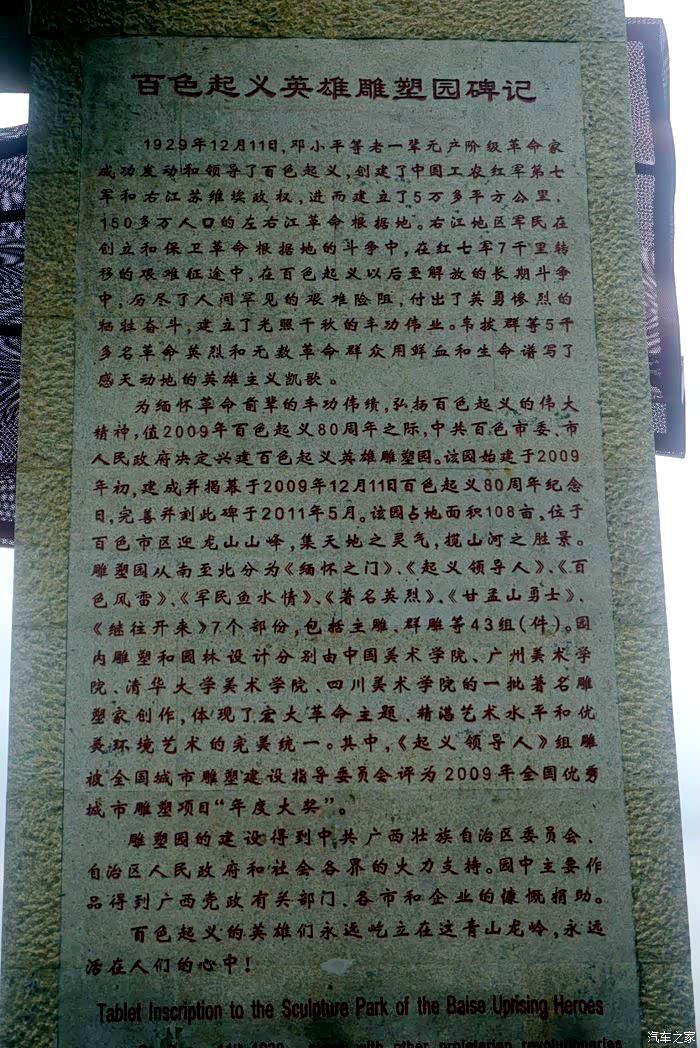 百色起义英雄雕塑园碑记
1929年12月11日,邓小平等老一辈无产阶级革命家
成功发动和领导了百色起义,创建了中国工农红军第七
军和右江苏维埃政权,进而建立了5万多平方公里、
150多万人口的左右江革命根据地。右江地区军民在
创立和保卫革命根据地的斗争中,在红七军7千里转
移的艰难征途中,在百色起义以后至解放的长期斗争
中,历尽了人间罕见的艰难险阻,付出了英勇惨烈的
牺牲奋斗,建立了光照千秋的丰功伟业。韦拔群等5千
多名革命英烈和无数革命群众用鲜血和生命谱写了
感天动地的英雄主义凯歌。
为缅怀革命前辈的丰功伟绩,弘扬百色起义的伟大
精神,值2009年百色起义80周年之际,中共百色市委、市
人民政府决定兴建百色起义英雄雕塑园。该园始建于2009
年初,建成并揭幕于2009年12月11日百色起义80周年纪念
日,完善并刻此碑于2011年5月。该园占地面积108亩、位于
百色市区迎龙山山峰,集天地之灵气,揽山河之胜景。
雕塑园从南至北分为《缅怀之门》、《起义领导人》、《百
色风雷》、《军民鱼水情》、《著名英烈》、《甘孟山勇士》、
《继往开来》7个部份,包括主雕、群雕等43组(件)。园
内雕塑和园林设计分别由中国美术学院、广州美术学
院、清华大学美术学院、四川美术学院的一批著名雕
塑家创作,体现了宏大革命主题、精湛艺术水平和优
美环境艺术的完美统一。其中,《起义领导人》组雕
被全国城市雕塑建设指导委员会评为2009年全国优秀
城市雕塑项目“年度大奖”。
雕塑园的建设得到中共广西壮族自治区委员会、
自治区人民政府和社会各界的大力支持。园中主要作
品得到广西党政有关部门、各市和企业的慷慨捐助。
百色起义的英雄们永远屹立在这青山龙岭,永远
活在人们的心中!
Tablet Inscription to the Sculpture Park of the Baise Uprising Heroes
with other proletarian revolutionaries
汽车之家